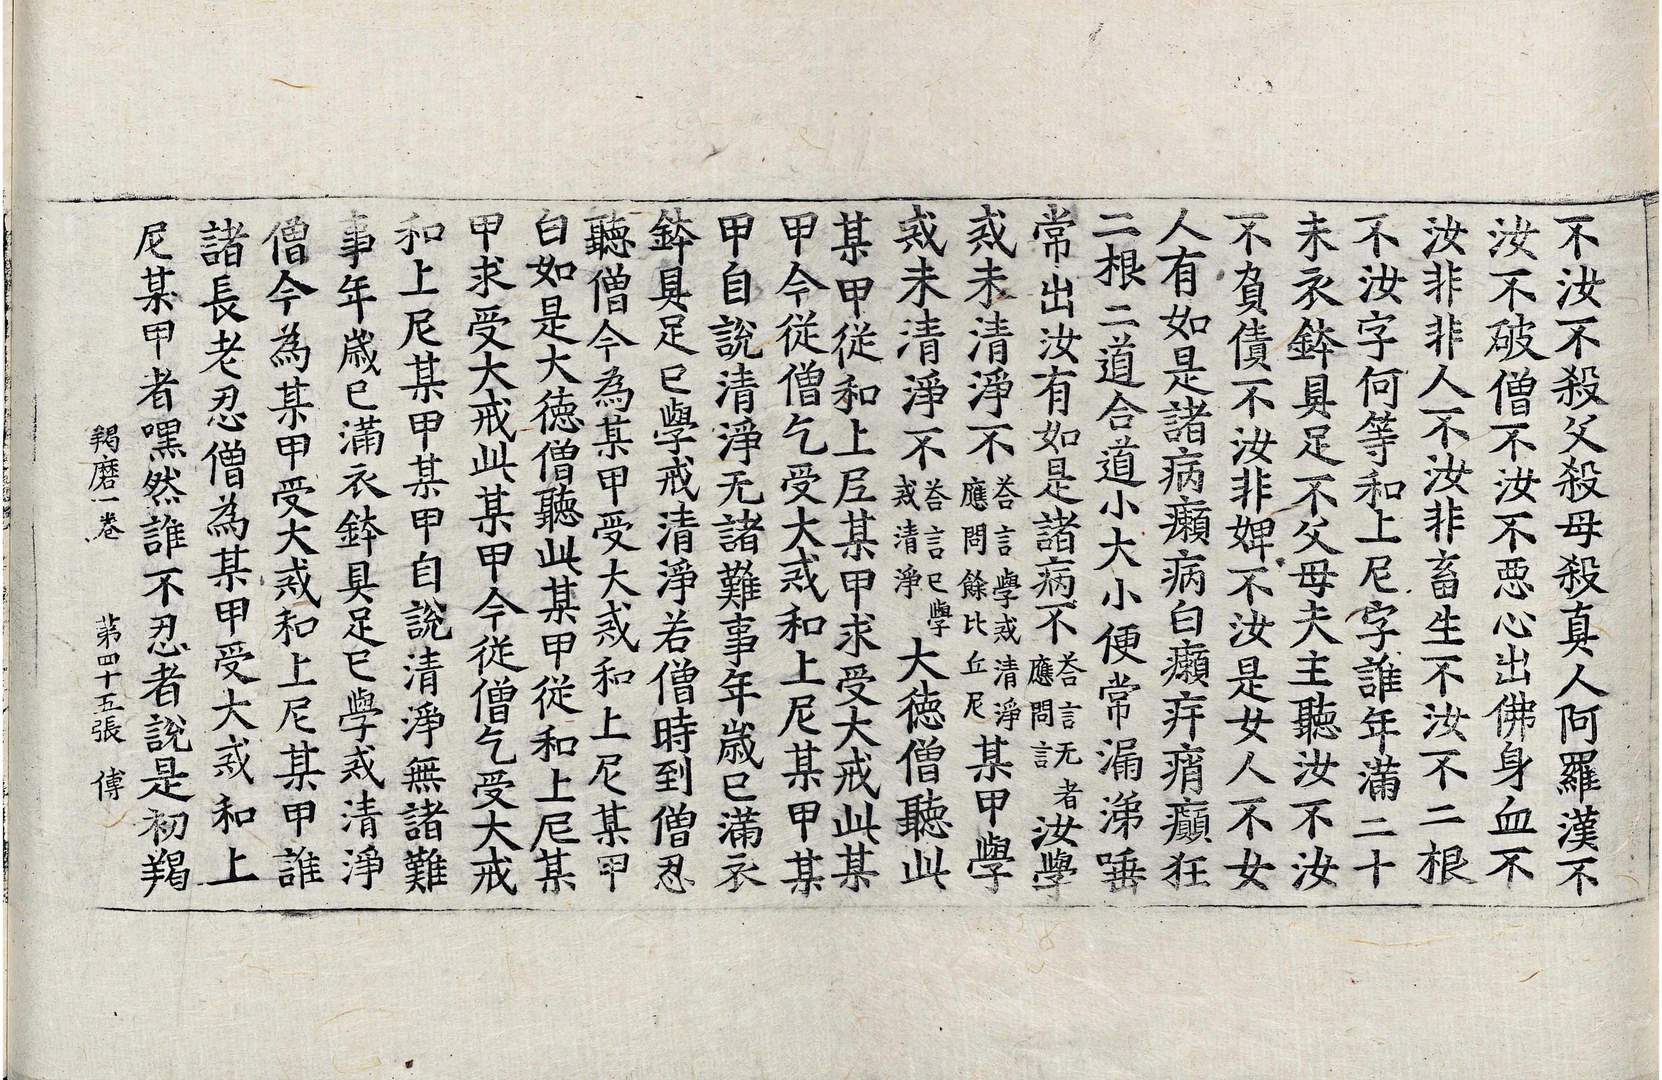 不汝不殺父殺母殺真人阿羅漢不
汝不破僧不汝不惡心出佛身血不
汝非非人不汝非畜生不汝不二根
不汝字何等和上尼字誰年滿二十
未衣鉢具足不父母夫主聽汝不汝
不負債不汝非婢不汝是女人不女
人有如是諸病癩病白癩疥痟癲狂
二根二道合道小大小便常漏涕唾
常出汝有如是諸病不荅言无者應問言汝學
戒未清淨不荅言學戒清淨應問餘比丘尼某甲學
戒未清淨不荅言已學戒清淨大徳僧聽此
某甲從和上尼某甲求受大戒此某
甲今從僧乞受大戒和上尼某甲某
甲自說清淨无諸難事年歲已滿衣
鉢具足已學戒清淨若僧時到僧忍
聽僧今為某甲受大戒和上尼某甲
白如是大徳僧聽此某甲從和上尼某
甲求受大戒此某甲今從僧乞受大戒
和上尼某甲某甲自說清淨無諸難
事年歲已滿衣鉢具足已學戒清淨
僧今為某甲受大戒和上尼某甲誰
諸長老忍僧為某甲受大戒和上
尼某甲者嘿然誰不忍者說是初羯
羯磨一卷 苐四十五張 傳